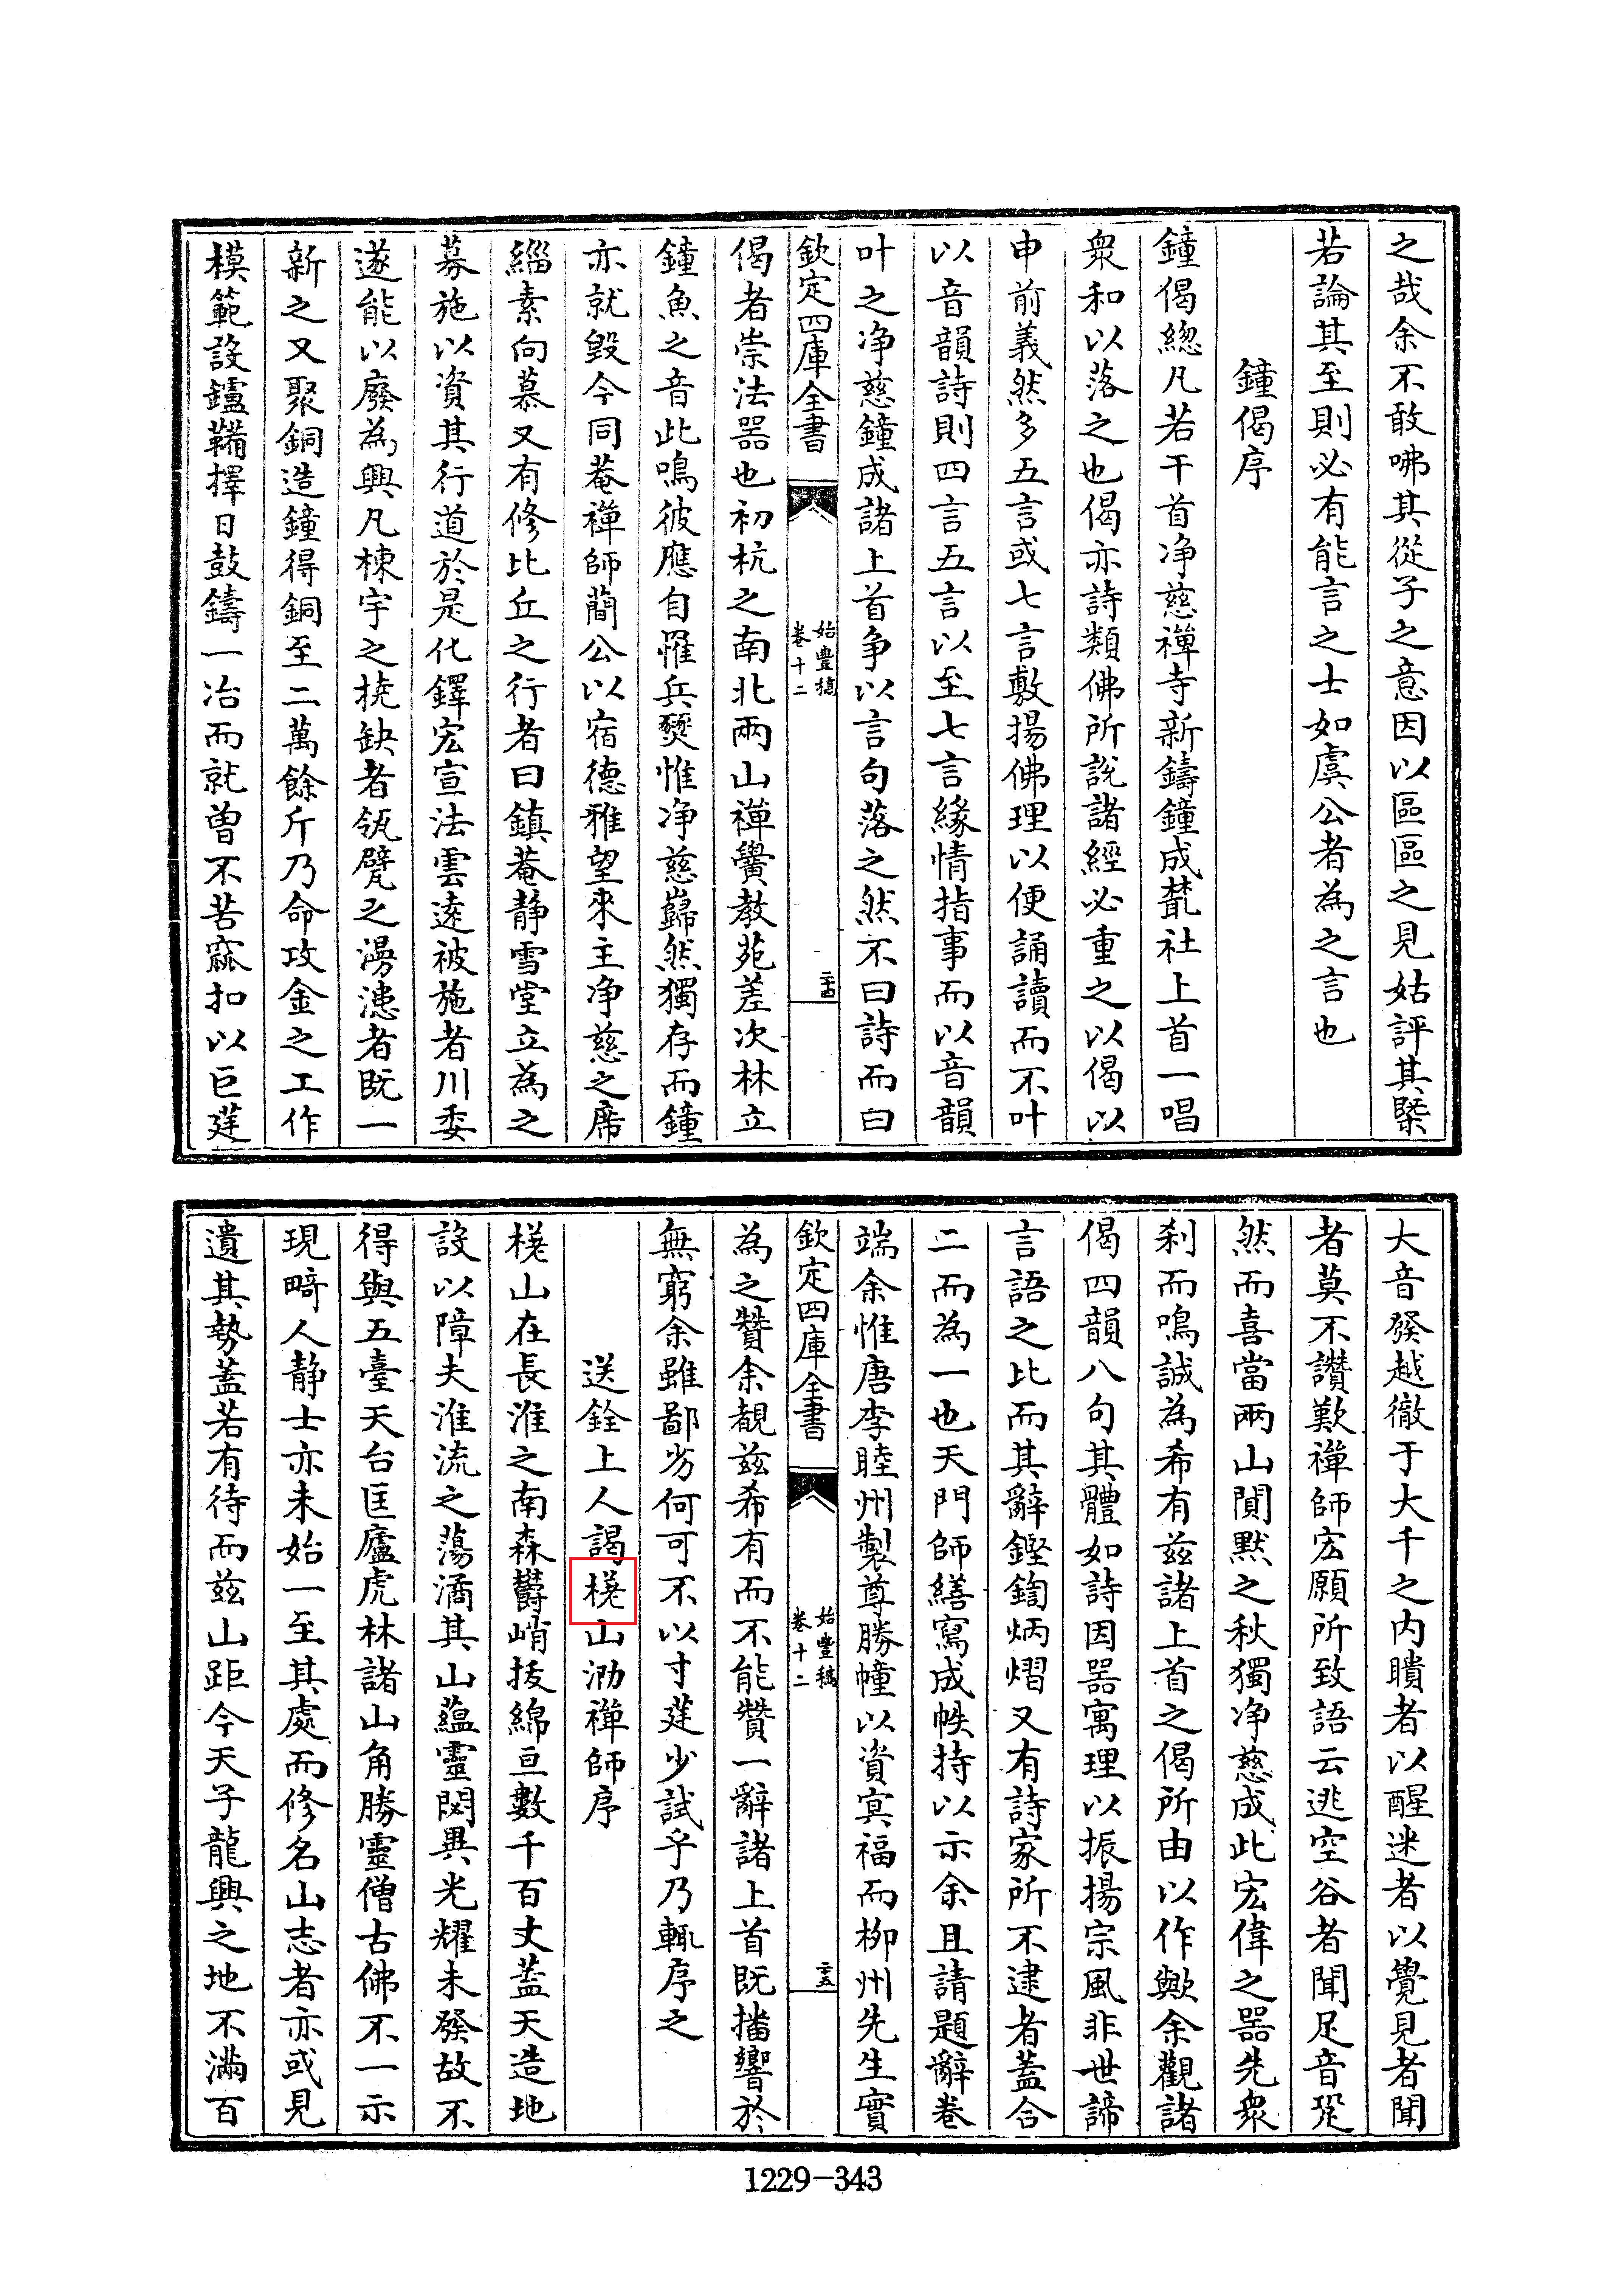 之哉余不敢咈其從子之意因以區區之見姑評其槩
若論其至則必有能言之士如虞公者為之言也
鐘偈序
鐘偈緫凡若干首净慈禪寺新鑄鐘成藂社上首一唱
衆和以落之也偈亦詩類佛所說諸經必重之以偈以
申前義然多五言或七言敷揚佛理以便誦讀而不叶
以音韻詩則四言五言以至七言緣情指事而以音韻
叶之净慈鐘成諸上首争以言句落之然不曰詩而曰
欽定四庫全書
始豐稿
卷十二
二十四
偈者崇法器也初杭之南北兩山禪黌教苑差次林立
鐘魚之音此鳴彼應自罹兵燹惟净慈巋然獨存而鐘
亦就毀今同菴禪師簡公以宿德雅望來主净慈之席
緇素向慕又有修比丘之行者曰鎮菴静雪堂立為之
募施以資其行道於是化鐸宏宣法雲遠被施者川委
遂能以廢為興凡棟宇之撓缺者瓴甓之漫漶者既一
新之又聚銅造鐘得銅至二萬餘斤乃命攻金之工作
模範設鑪鞴擇日鼓鑄一冶而就曽不苦窳扣以巨莛
大音發越徹于大千之内聵者以醒迷者以覺見者聞
者莫不讚歎禪師宏願所致語云逃空谷者聞足音跫
然而喜當兩山閴默之秋獨净慈成此宏偉之器先衆
刹而鳴誠為希有兹諸上首之偈所由以作歟余觀諸
偈四韻八句其體如詩因器寓理以振揚宗風非世諦
言語之比而其辭鏗鍧炳熠又有詩家所不逮者蓋合
二而為一也天門師繕寫成帙持以示余且請題辭卷
端余惟唐李睦州製尊勝幢以資冥福而栁州先生實
欽定四庫全書
始豐稿
卷十二
二十五
為之贊余覩兹希有而不能贊一辭諸上首既播響於
無窮余雖鄙劣何可不以寸莛少試乎乃輒序之
送銓上人謁槎山泐禪師序
槎山在長淮之南森欝峭拔綿亘數千百丈蓋天造地
設以障夫淮流之蕩潏其山藴靈閟異光耀未發故不
得與五臺天台匡廬虎林諸山角勝靈僧古佛不一示
現畸人静士亦未始一至其處而修名山志者亦或見
遺其勢蓋若有待而兹山距今天子龍興之地不滿百
1229-343